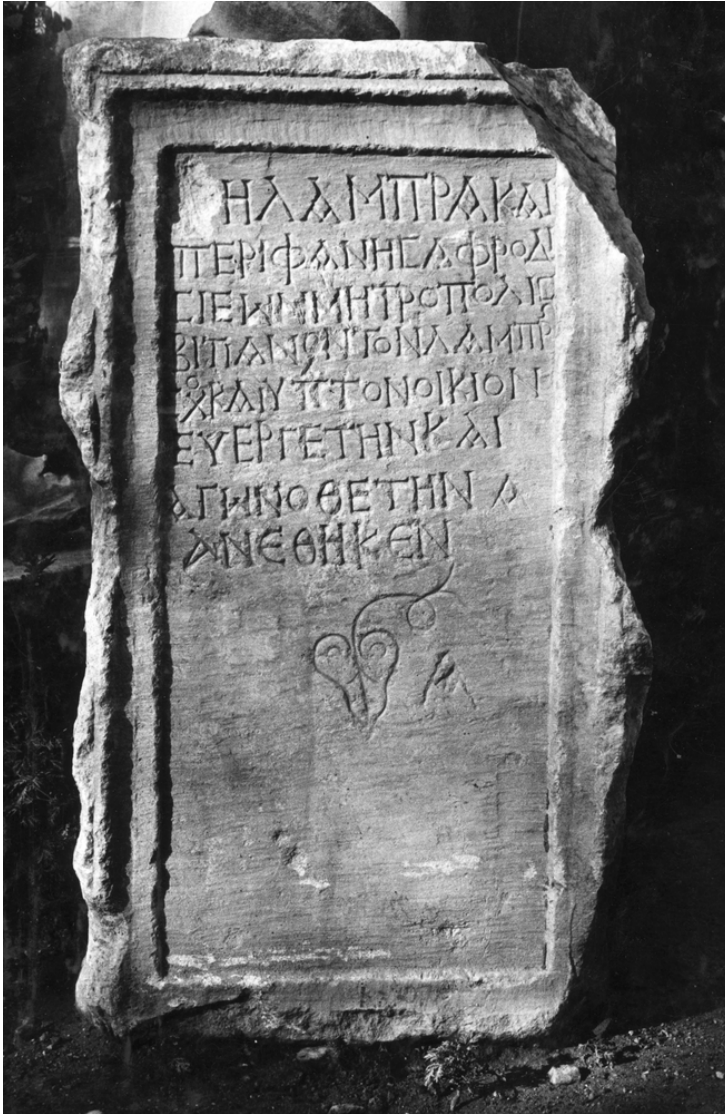 ΗΛΑΜΠΡΑΚΑΙ
ΠΕΡΙΦΑΝΗϹΑΦΡΟΔΙ
ϹΙΕωΝΜΗΤΡΟΠΟΛΙϹ
ΒΙΤΙΑΝΟΝΤΟΝΛΑΜΠΡ
ϹΧΟΚΑΙΥΠΤΟΝΟΙΚΙΟΝ
ΕΥΕΡΓΕΤΗΝΚΑΙ
ΑΓωΝΟΘΕΤΗΝ Α
ΑΝΕΘΗΚΕΝ